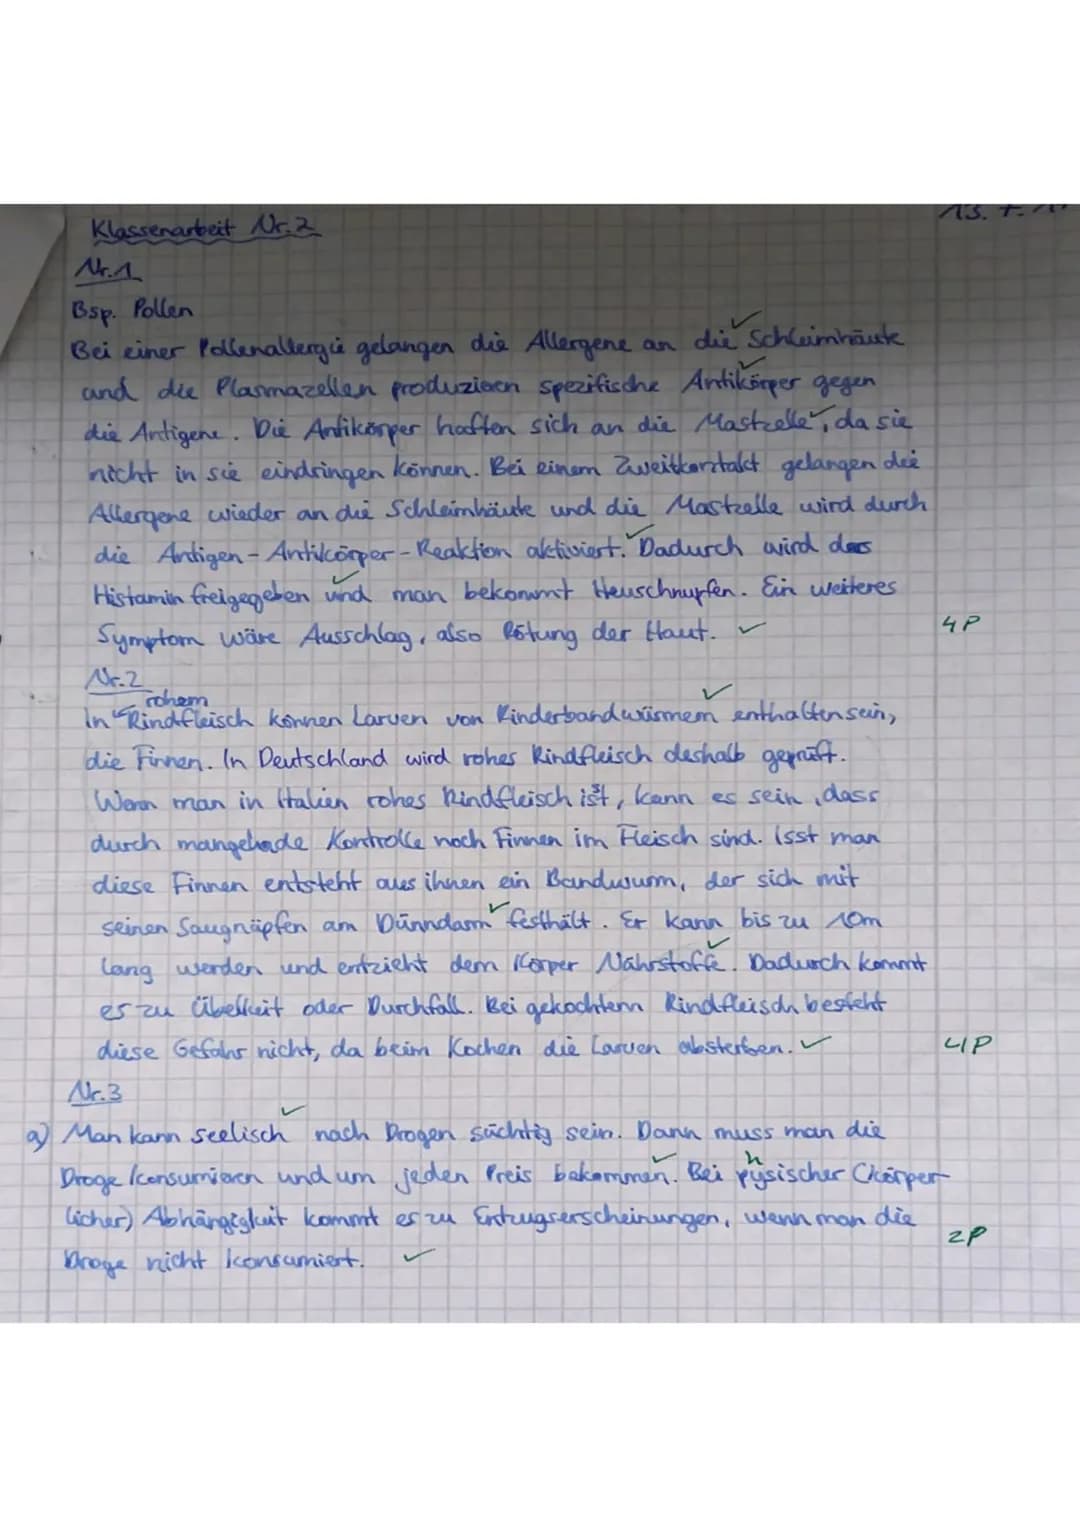 Klassenarbeit Nr. 2
Nr. 1
Bsp. Pollen
Bei einer Pollenallergie gelangen die Allergene an die Schleimhäute
und die Plasmazellen produzieren spezifische Antikörper gegen
die Antigene. Die Antikörper haften sich an die Mastzelle, da sie
nicht in sie eindringen können. Bei einem Zweitkontakt gelangen die
Allergene wieder an die Schleimhäute und die Mastzelle wird durch
die Antigen-Antikörper-Reaktion aktiviert. Dadurch wird das
Histamin freigegeben und man bekommt Heuschnupfen. Ein weiteres
Symptom wäre Ausschlag, also Rötung der Haut. 4P
Nr. 2
rohem
In Rindfleisch können Larven von Rinderbandwürmern enthalten sein,
die Finnen. In Deutschland wird rohes Rindfleisch deshalb geprüft.
Wenn man in Italien rohes Rindfleisch ist, kann es sein, dass
durch mangelnde Kontrolle noch Finnen im Fleisch sind. Isst man
diese Finnen entsteht aus ihnen ein Bandwurm, der sich mit
seinen Saugnäpfen am Dünndarm festhält. Er kann bis zu 10m
lang werden und entzieht dem Körper Nährstoffe. Dadurch kommt
es zu Übelkeit oder Durchfall. Bei gekochtem Rindfleisch besteht
diese Gefahr nicht, da beim Kochen die Larven absterben. 4P
Nr. 3
a) Man kann seelisch nach Drogen süchtig sein. Dann muss man die
Droge konsumieren und um jeden Preis bekommen. Bei physischer (körper-
licher) Abhängigkeit kommt es zu Entzugserscheinungen, wenn man die
Droge nicht konsumiert. 2P